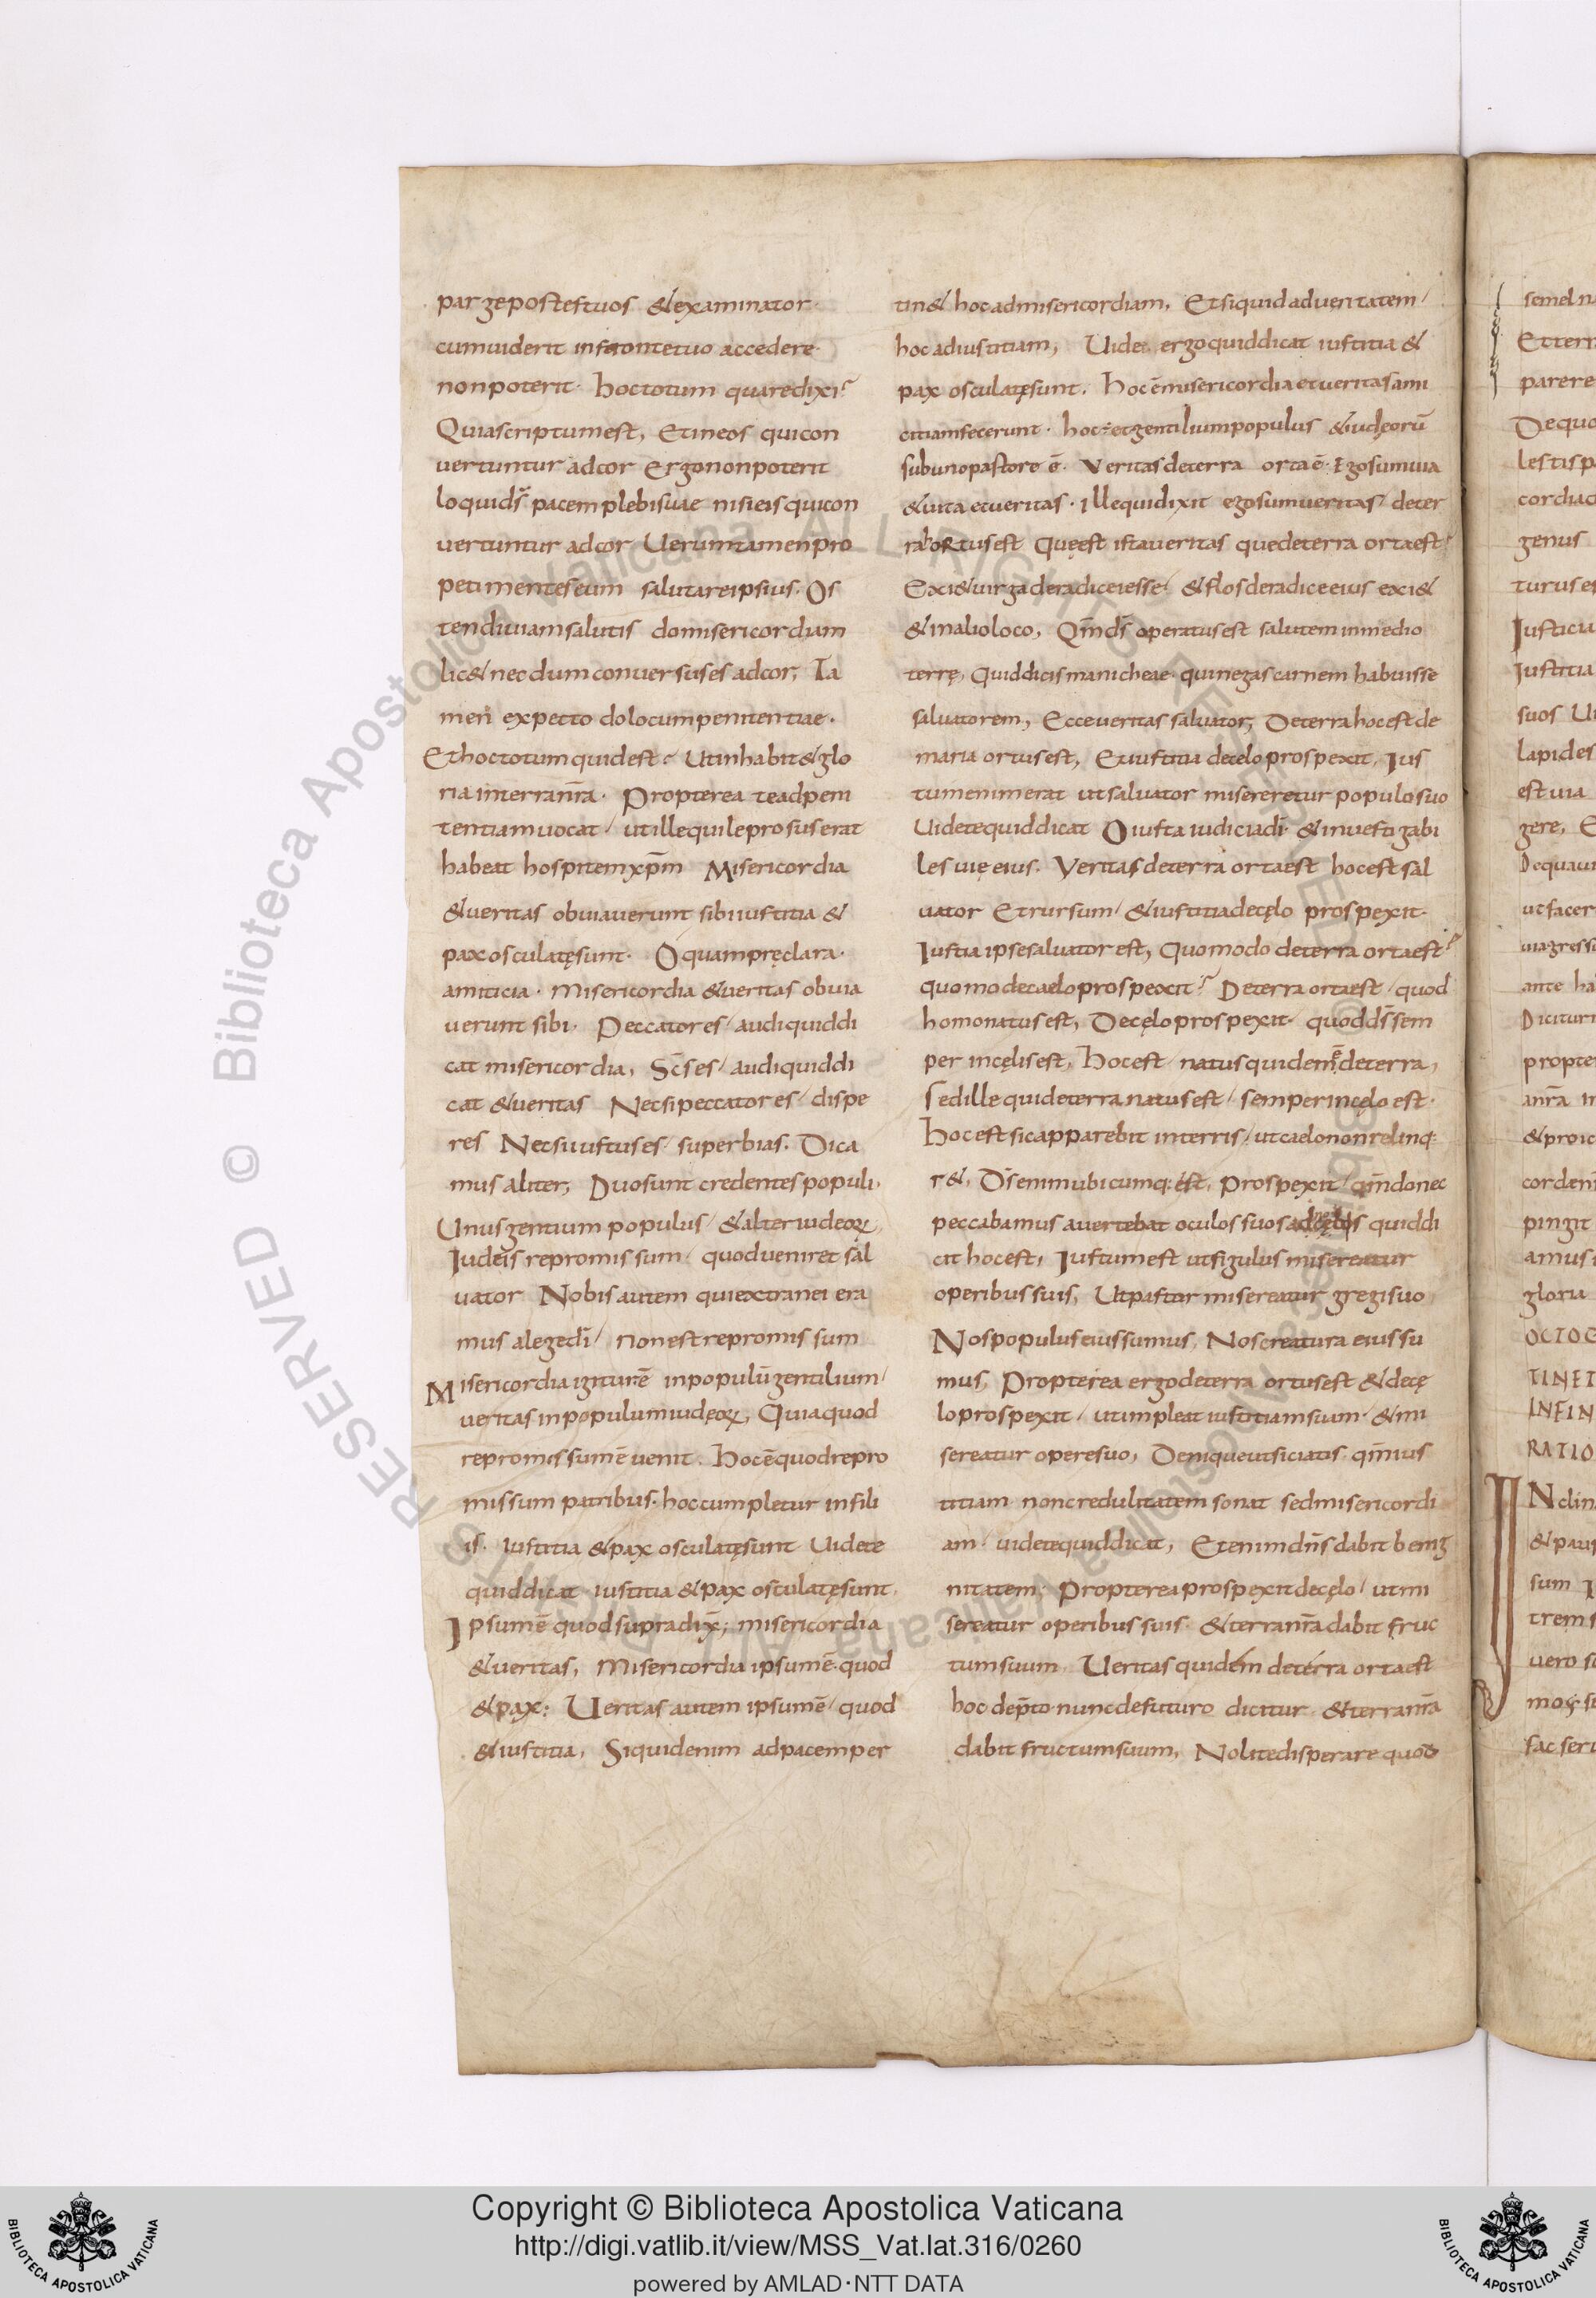 parge postes tuos & examinator
cum uiderit in fronte tuo accedere
non poterit. hoc totum quare dixi?
Quia scriptum est, Et in eos qui con
uertuntur ad cor Ergo non poterit
loqui ds̄ pacem plebi suae nisi eis qui con
uertuntur ad cor Uerumtamen pro
pe timentes eum salutare ipsius. Os
tendi uiam salutis do misericordiam
lic& necdum conuersus es ad cor, Ta
men expecto do locum penitentiae.
Et hoc totum quid est? Ut inhabit& glo
ria in terra nr̄a. Propterea te ad peni
tentiam uocat / ut ille qui leprosus erat
habeat hospitem xp̄m Misericordia
& ueritas obuiauerunt sibi iustitia &
pax osculatę sunt. O quam pręclara
amiticia. Misericordia & ueritas obuia
uerunt sibi. Peccator es / audi quid di
cat misericordia, Sc̄s es / audi quid di
cat & ueritas Nec si peccator es / dispe
res Nec si iustus es / superbias. Dica
mus aliter, Duo sunt credentes populi.
Unus gentium populus / & alter iudeoꝝ,
Iudeis repromissum / quod ueniret sal
uator Nobis autem qui extranei era
mus a lege dī / non est repromissum
Misericordia igitur ē in populū gentilium /
ueritas in populum iudęoꝝ, Quia quod
repromissum ē uenit. Hoc ē quod repro
missum patribus. hoc cumpletur in fili
is. Iustitia & pax osculatę sunt Uidete
quid dicat iustitia & pax osculatę sunt.
Ipsum ē quod supra dix̄; misericordia
& ueritas, Misericordia ipsum ē. quod
& pax: Ueritas autem ipsum ē / quod
& iustitia, Siquid enim ad pacem per
tin& hoc ad misericordiam, Et si quid ad ueritatem /
hoc ad iustitiam, Uide ergo quid dicat iustitia &
pax osculatę sunt. Hoc ē misericordia et ueritas ami
citiam fecerunt. hoc ÷ et gentilium populus & iudęorū
sub uno pastore ē. Veritas de terra orta ē. Ego sum uia
& uita et ueritas. Ille qui dixit ego sum ueritas / de ter
ra ortus est Quę est ista ueritas que de terra orta est?
Exi& uirga de radice iesse / & flos de radice eius exi&
& in alio loco, Qm̄ ds̄ operatus est salutem in medio
terrę, Quid dicis manicheae qui negas carnem habuisse
saluatorem, Ecce ueritas saluator, De terra hoc est de
maria ortus est, Et iustitia de cęlo prospexit, Ius
tum enim erat ut saluator misereretur populo suo
Uidete quid dicat O iusta iudicia dī & inuestigabi
les uię eius. Veritas de terra orta est hoc est sal
uator Et rursum / & iustitia de cęlo prospexit.
Iustia ipse saluator est, Quomodo de terra orta est?
quomo de caelo prospexit? De terra orta est / quod
homo natus est, De cęlo prospexit quod ds̄ sem
per in cęlis est, Hoc est / natus quidem ē de terra,
Sed ille qui de terra natus est / semper in cęlo est.
Hoc est sic apparebit in terris / ut caelo non relinq:
r&, Ds̄ enim ubicumq: est, Prospexit / qm̄ donec
peccabamus auertebat oculos suos quid di
cit hoc est, Iustum est ut figulus misereatur
operibus suis, Ut pastor misereatur gregi suo
Nos populus eius sumus, Nos creatura eius su
mus, Propterea ergo de terra ortus est & de cę
lo prospexit / ut impleat iustitiam suam / & mi
sereatur opere suo, Denique ut siciatis qm̄ ius
titiam non credulitatem sonat sed misericordi
am / uidete quid dicat, Etenim dn̄s dabit benig
nitatem, Propterea prospexit de cęlo / ut mi
sereatur operibus suis & terra nr̄a dabit fruc
tum suum Ueritas quidem de terra orta est
hoc de p̄to nunc de futuro dicitur & terra nr̄a
dabit fructum suum, Nolite disperare quod
Copyright © Biblioteca Apostolica Vaticana
http://digi.vatlib.it/view/MSS_Vat.lat.316/0260
powered by AMLAD·NTT DATA